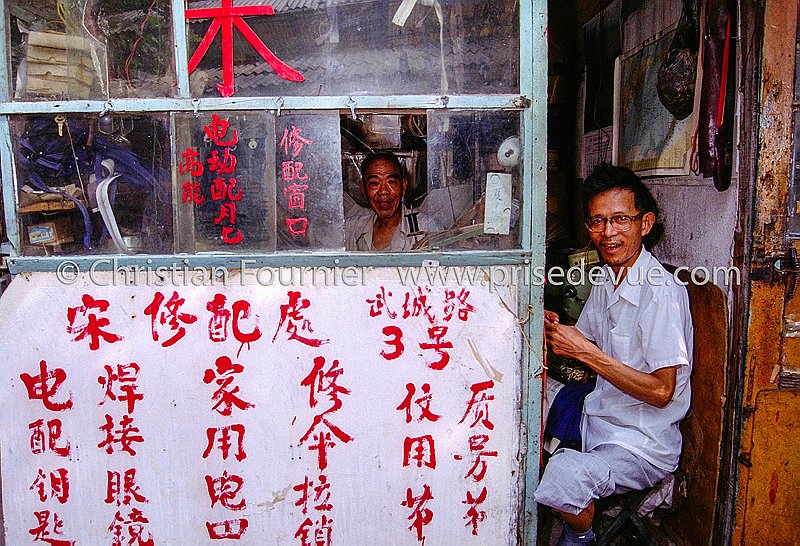 木
电动配月匕
高能
修配窗口
© Christian Fournier www.prisedevue.com
宋修配處
武城路
3号
电配钥匙
焊接眼镜
家用电
修伞拉锁
用节
质号节